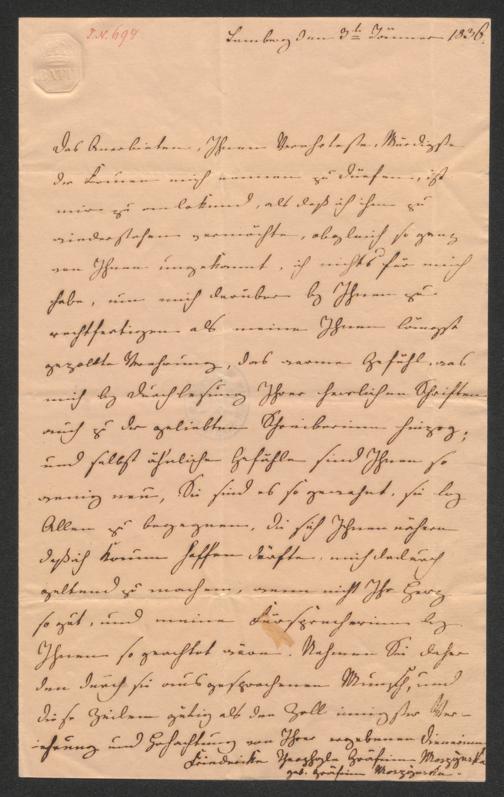 J.N. 694
BATH
Lemberg den 3t Jänner 1836.
Das Anerbieten, Ihnen Verehrteste, Würdigste
der Frauen mich nennen zu dürfen, ist
mir zu, als daß ich ihm zu
wiederstehen vermöchte, obgleich so ganz
von Ihnen ungekannt, ich nichts für mich
habe, um mich darüber by Ihnen zu
rechtfertigen als meine Ihnen längst
gezollte Verehrung, das warme Gefühl, was
mich by Durchlesung Ihrer herrlichen Schriften
auch zu der geliebten Schreiberinn hinzog;
und selbst ähnliche Gefühle sind Ihnen so
wenig neu, Sie sind es so gewohnt, sie by
Allen zu begegnen, die sich Ihnen nähern
daß ich kaum hoffen dürfte, mich dadurch
geltend zu machen, wenn nicht Ihr Herz
so gut, und meine Fürsprecherinn by
Ihnen so geachtet wäre. Nehmen Sie daher
den durch sie ausgesprochenen Wunsch, und
diese Zeilen gütig als den Zoll innigster Ver-
ehrung und Hochachtung von Ihrer ergebenen Dienerinn
Friederike Theophyle Gräfinn
geb. Gräfinn